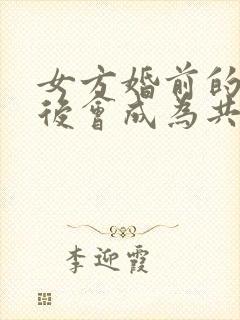 女方婚前的
後會成為共
李迎霞